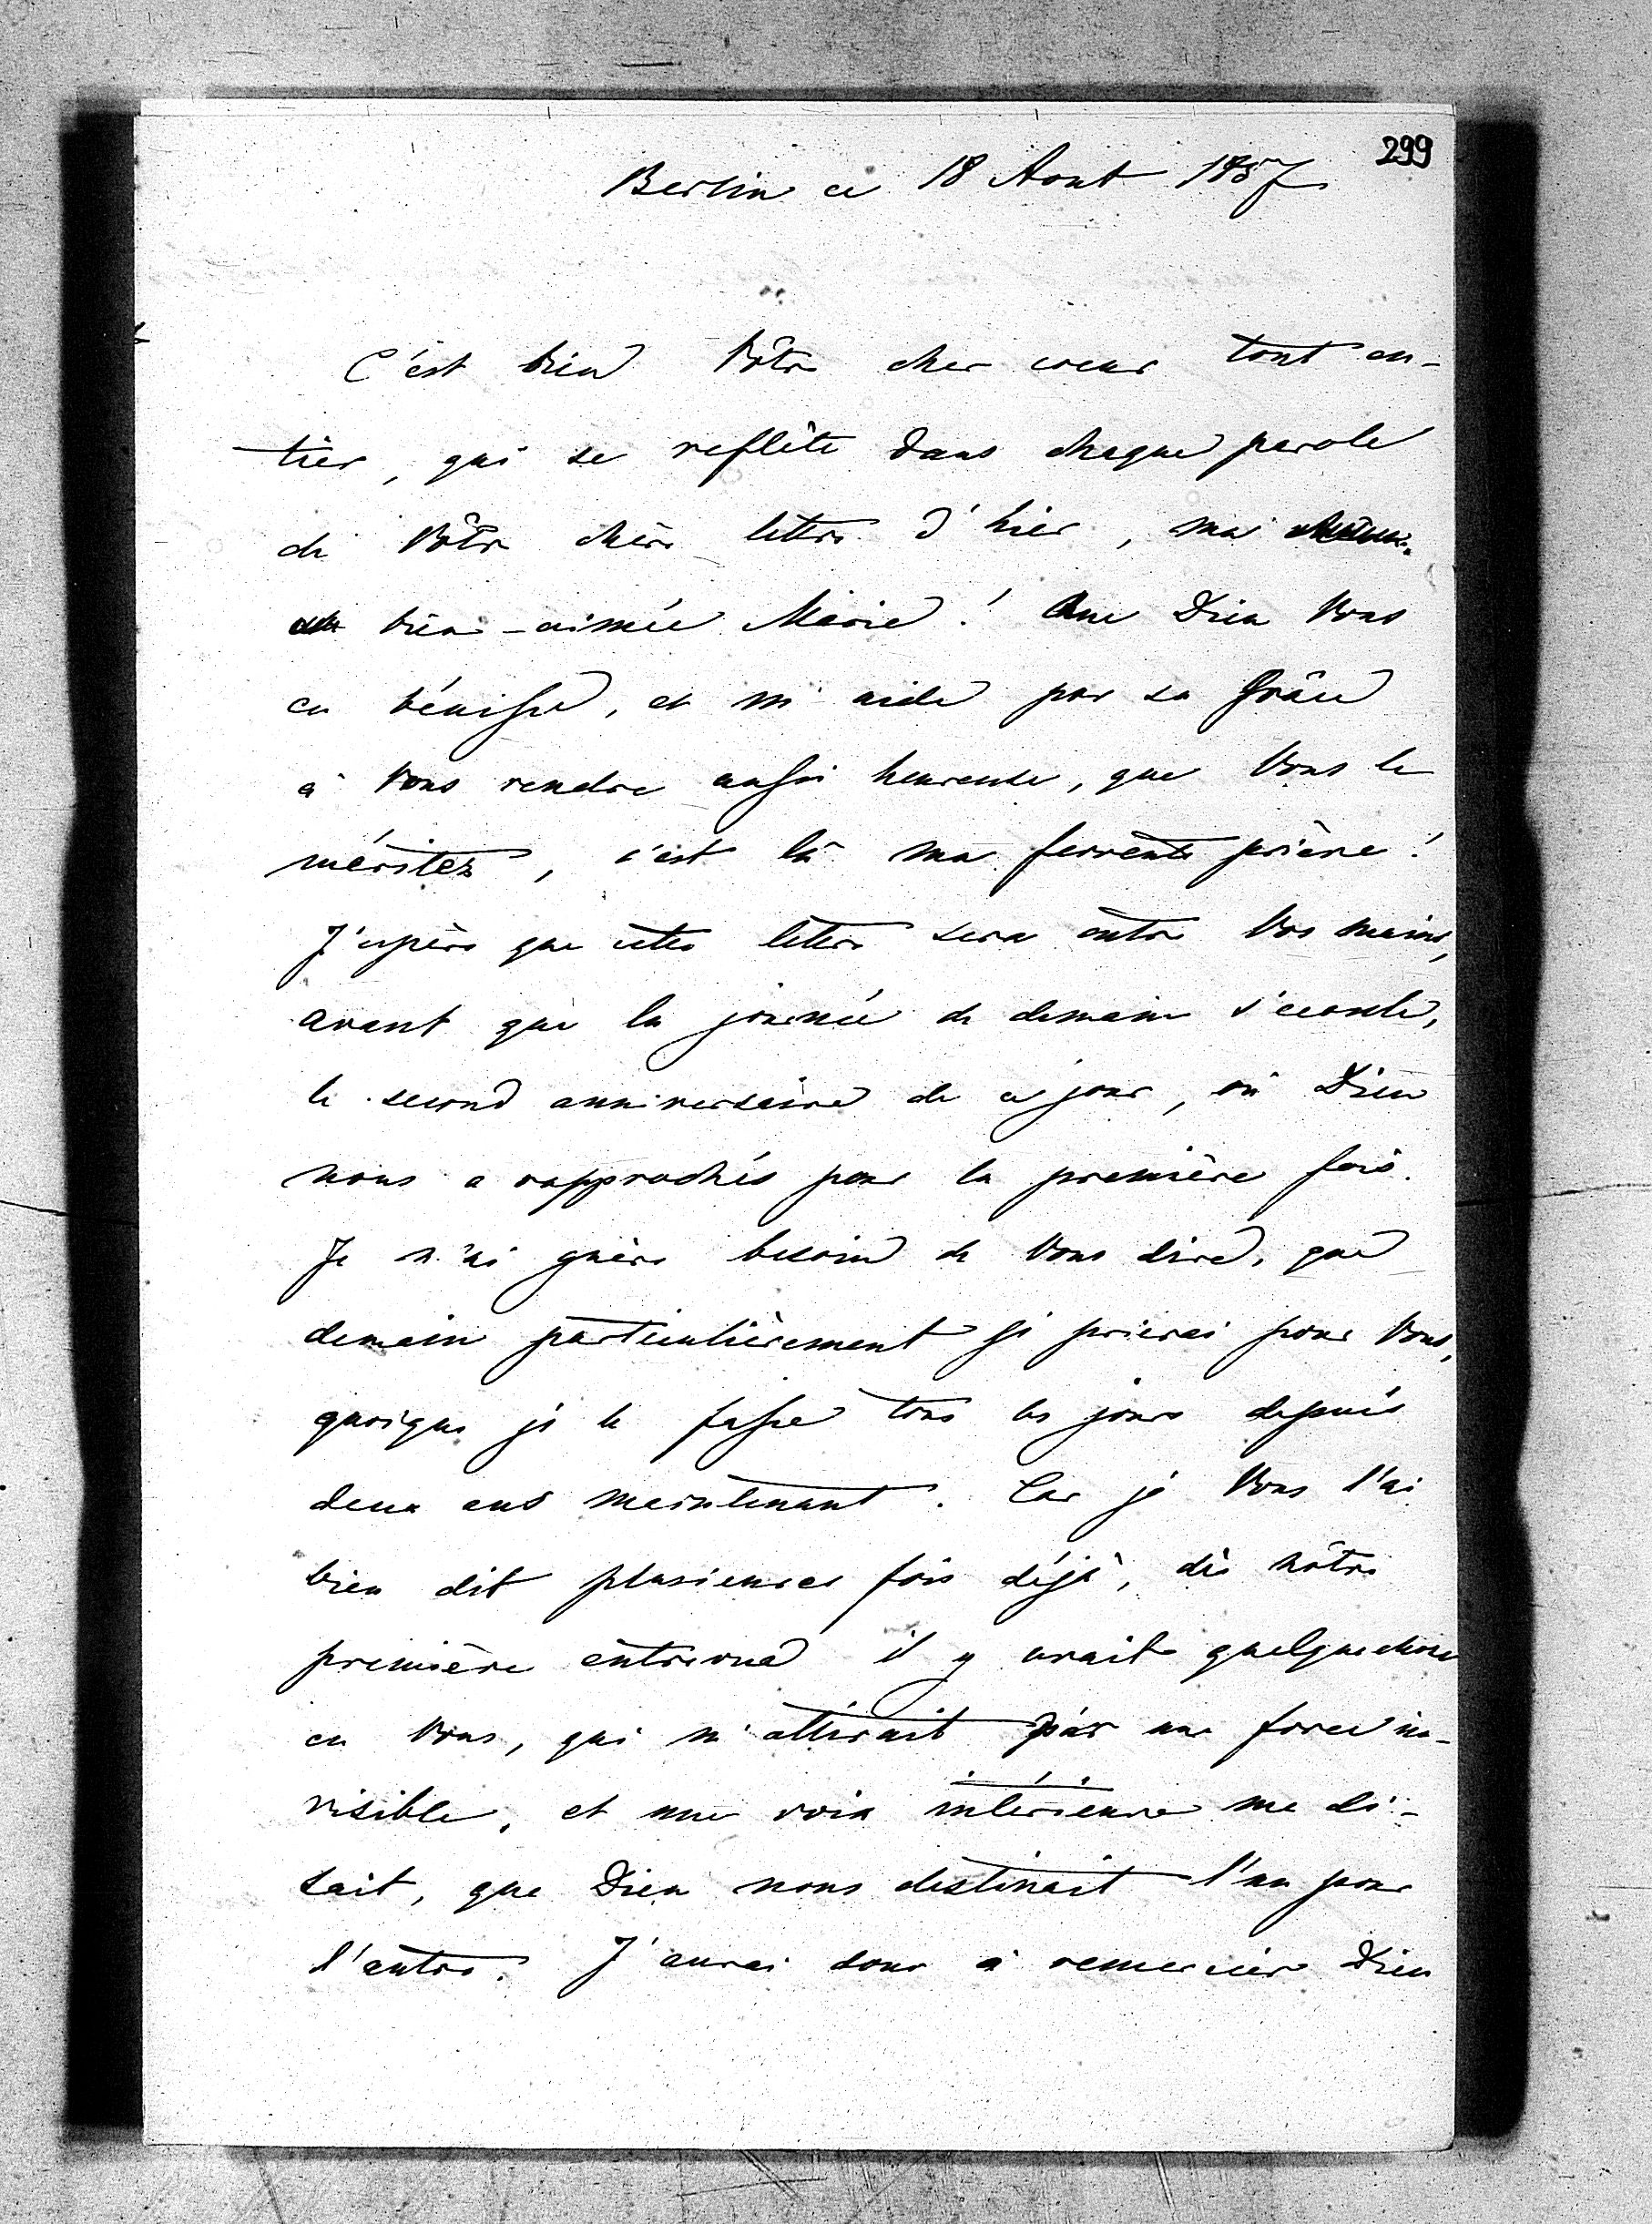 299
Berlin ce 18 Aout 1857
C'est bien Vôtre cher coeur tout en-
tier, qui se reflête dans chaque parole
de Vôtre chère lettre d'hier, ma
bien-aimée Marie! Que Dieu Vous
en bénisse, et m'aide par sa Grâce
à Vous rendre aussi heureuse, que Vous le
méritez, c'est là ma fervente prière!
J'espère que cette lettre sera entre Vos mains,
avant que la journée de demain s'écoule,
le second anniversaire de ce jour, où Dieu
nous a rapprochés pour la première fois.
Je n'ai guère besoin de Vous dire, que
demain particulièrement je prierai pour Vous,
quoique je le fasse tous les jours depuis
deux ans maintenant. Car je Vous l'ai
bien dit plusieures fois déjà, dès nôtre
première entrevue il y avait quelquechose
en Vous, qui m'attirait par une force in-
visible, et une voix intérieure me di-
sait, que Dieu nous destinait l'un pour
l'autre. J'aurai donc à remercier Dieu